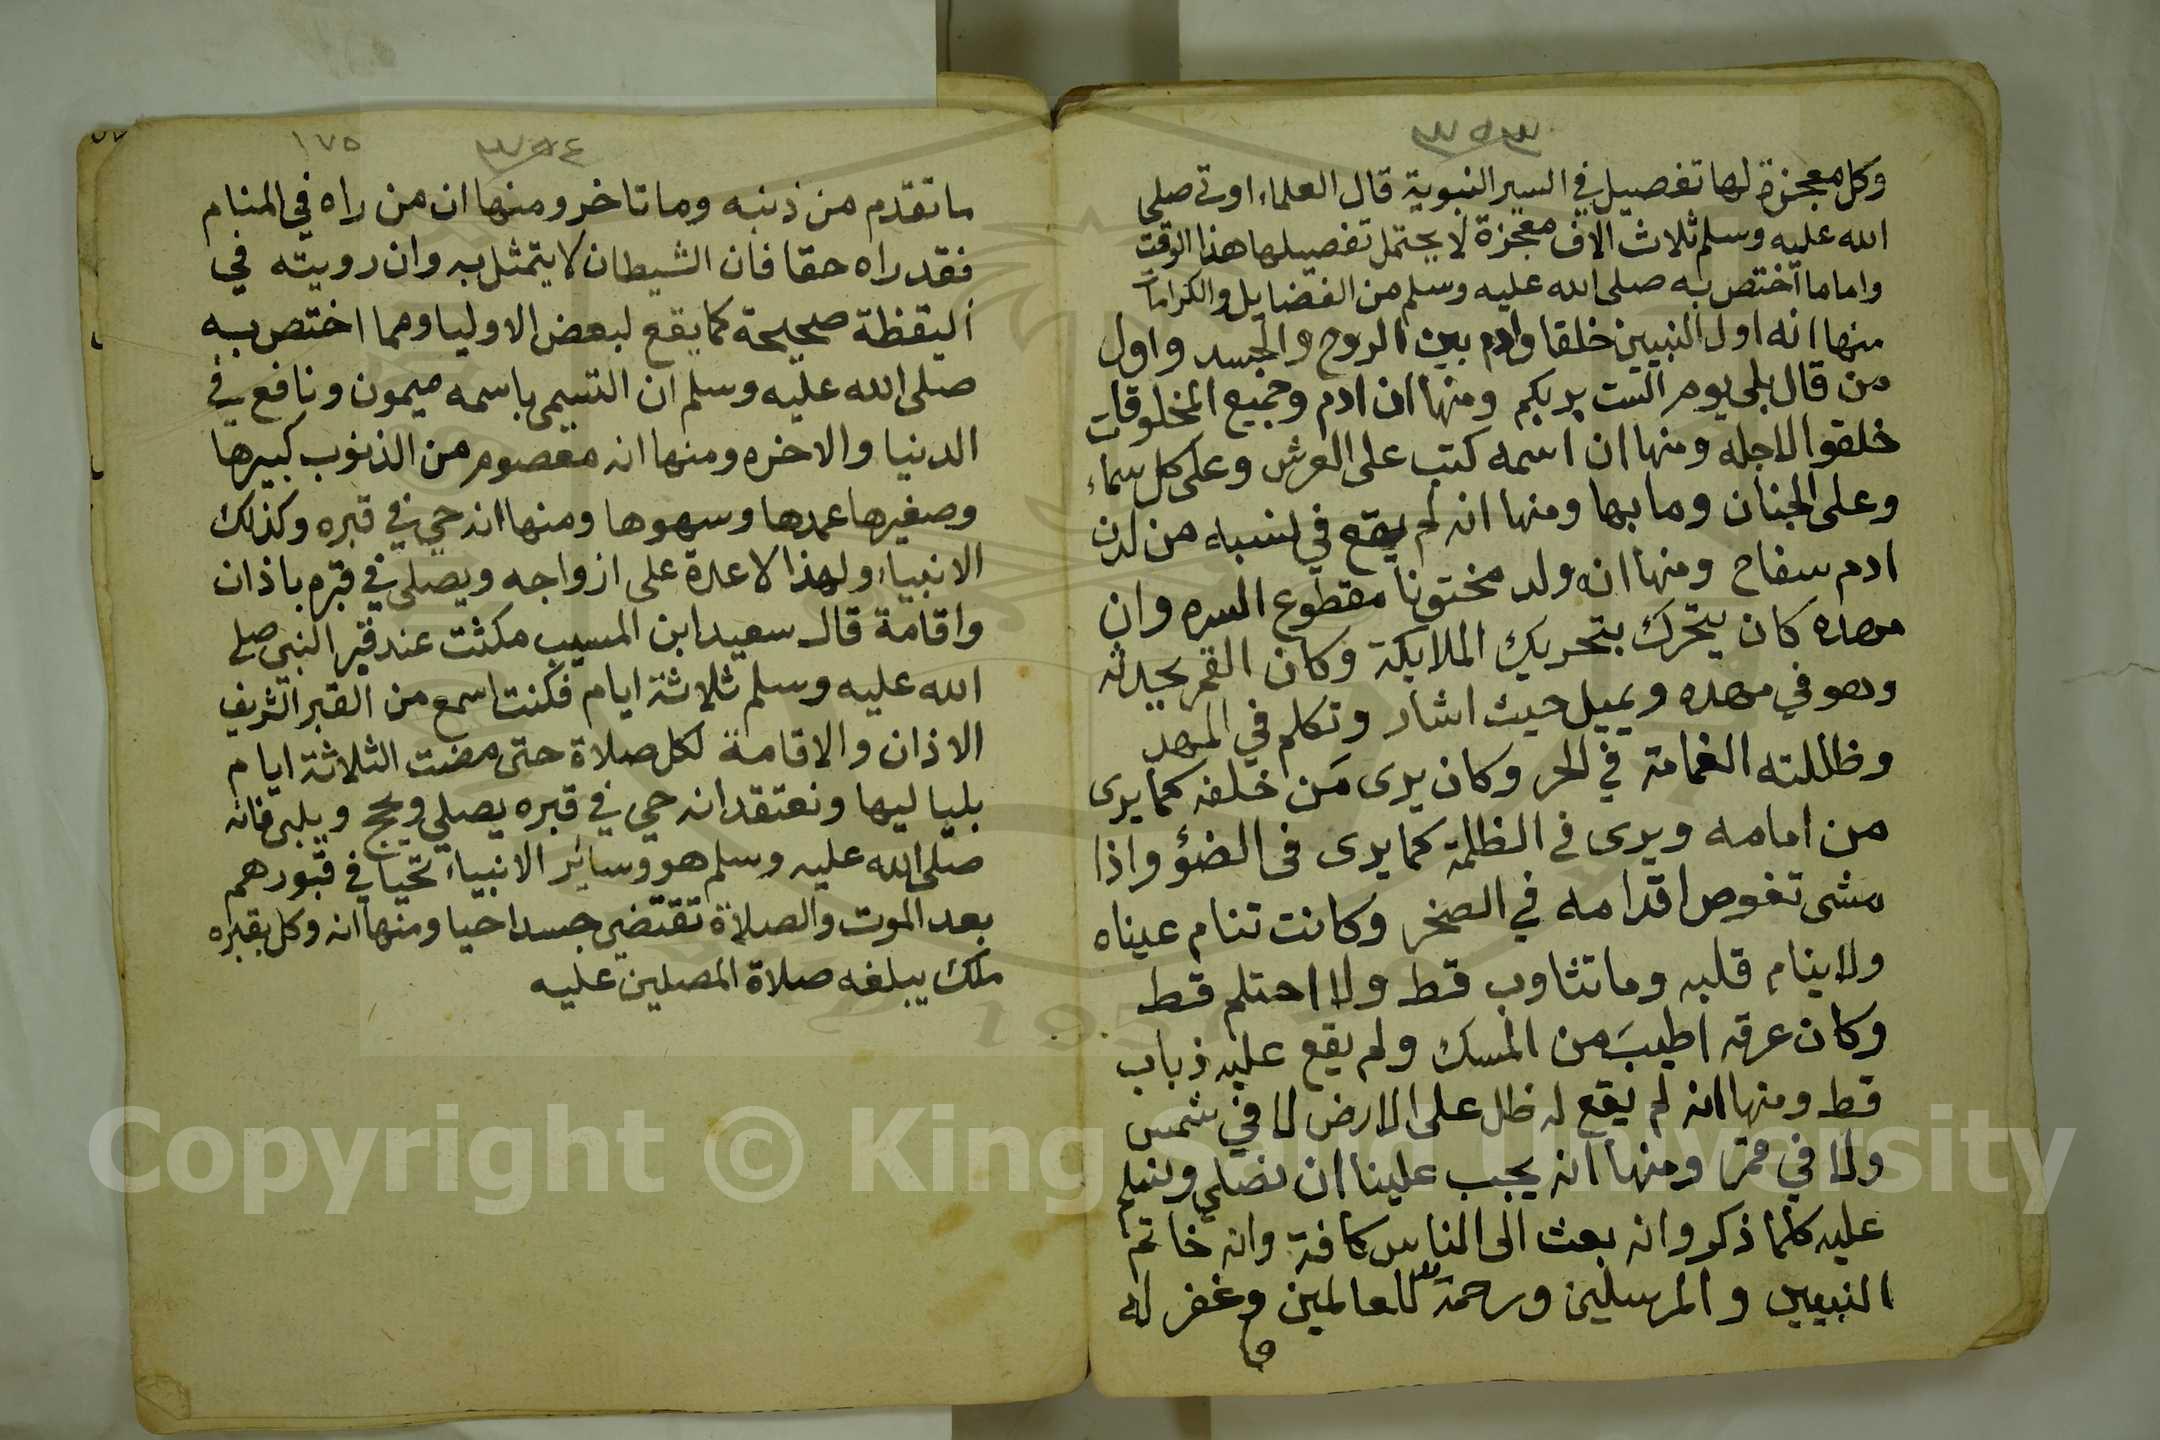 ٣٥٣
وكل معجزة لها تفصيل في السير النبوية قال العلماء اوتي صلى
الله عليه وسلم ثلاث الاف معجزة لا يحتمل تفصيلها هذا الوقت
واما ما اختص به صلى الله عليه وسلم من الفضايل والكرامات
منها انه اول النبيين خلقا وادم بين الروح والجسد واول
من قال بلى يوم الست بربكم ومنها ان ادم وجميع المخلوقات
خلقوا لاجله ومنها ان اسمه كتب على العرش وعلى كل سماء
وعلى الجنان وما بها ومنها انه لم يقع في نسبه من لدن
ادم سفاح ومنها انه ولد مختونا مقطوع السره وان
مهده كان يتحرك بتحريك الملايكة وكان القمر يحدثه
وهو في مهده ويميل حيث اشار وتكلم في المهد
وظللته الغمامة في الحر وكان يرى من خلفه كما يرى
من امامه ويرى في الظلمة كما يرى في الضؤ واذا
مشى تغوص اقدامه في الصخر وكانت تنام عيناه
ولا ينام قلبه وما تثاوب قط ولا احتلم قط
وكان عرقه اطيب من المسك ولم يقع عليه ذباب
قط ومنها انه لم يقع له ظل على الارض لا في شمس
ولا في قمر ومنها انه يجب علينا ان نصلي ونسلم
عليه كلما ذكر وانه بعث الى الناس كافة وانه خاتم
النبيين والمرسلين ورحمة للعالمين وغفر له
١٧٥
٣٥٤
ما تقدم من ذنبه وما تاخر ومنها ان من راه في المنام
فقد راه حقا فان الشيطان لا يتمثل به وان رويته في
اليقظة صحيحة كما يقع لبعض الاوليا ومما اختص به
صلى الله عليه وسلم ان التسمي باسمه ميمون ونافع في
الدنيا والاخره ومنها انه معصوم من الذنوب كبيرها
وصغيرها عمدها وسهوها ومنها انه حي في قبره وكذلك
الانبياء ولهذا لا عدة على ازواجه ويصلي في قبره باذان
واقامة قال سعيد ابن المسيب مكثت عند قبر النبي صلى
الله عليه وسلم ثلاثة ايام فكنت اسمع من القبر الشريف
الاذان والاقامة لكل صلاة حتى مضت الثلاثة ايام
بلياليها ونعتقد انه حي في قبره يصلي ويحج ويلبي فانه
صلى الله عليه وسلم هو وسائر الانبياء تحيا في قبورهم
بعد الموت والصلاة تقتضي جسدا حيا ومنها انه وكل بقبره
ملك يبلغه صلاة المصلين عليه
Copyright © King Saud University